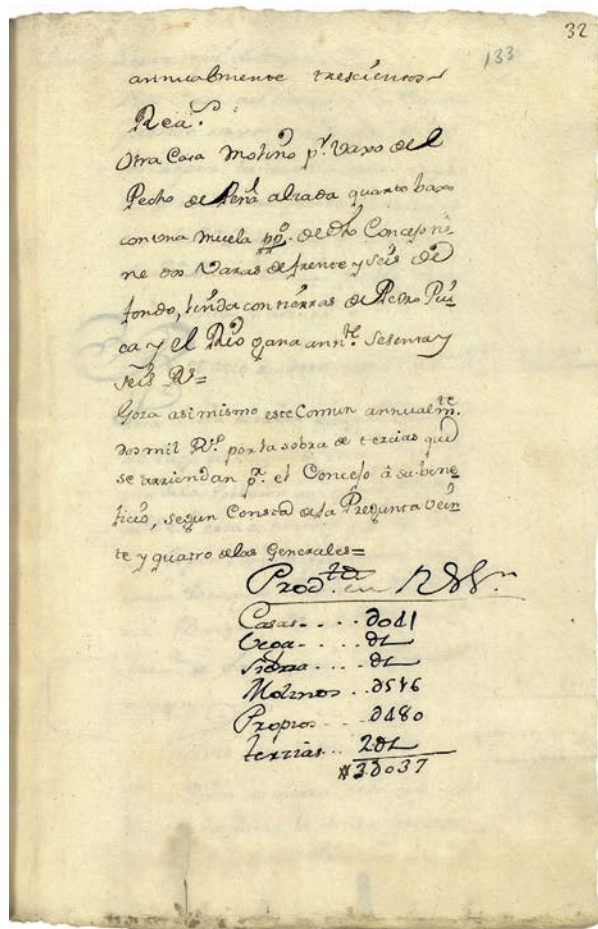 32
133
annualmente trescientos
Rea.s
Otra Casa Molino p.r vaxo de el
Pecho de Peña alzada quarto baxo
con una muela pp.a de dho Concejo ti=
ne dos Varas de frente y seis de
fondo, linda con tierras de Pedro
ca y el Rio gana ann.te sesenta y
seis R.s=
Goza asi mismo este Comun annualm.te
dos mil R.s por la sobra de tercias que
se arriendan p.r el Concejo à su bene=
ficio, segun Consta de la Pregunta vein=
te y quatro de las Generales=
Prod.to en
Casas- - . . . Ð041
. . . . Ð
. . . . Ð
Molinos . . Ð546
Propios - - - . Ð480
tercias . . . 2Ð
3Ð037